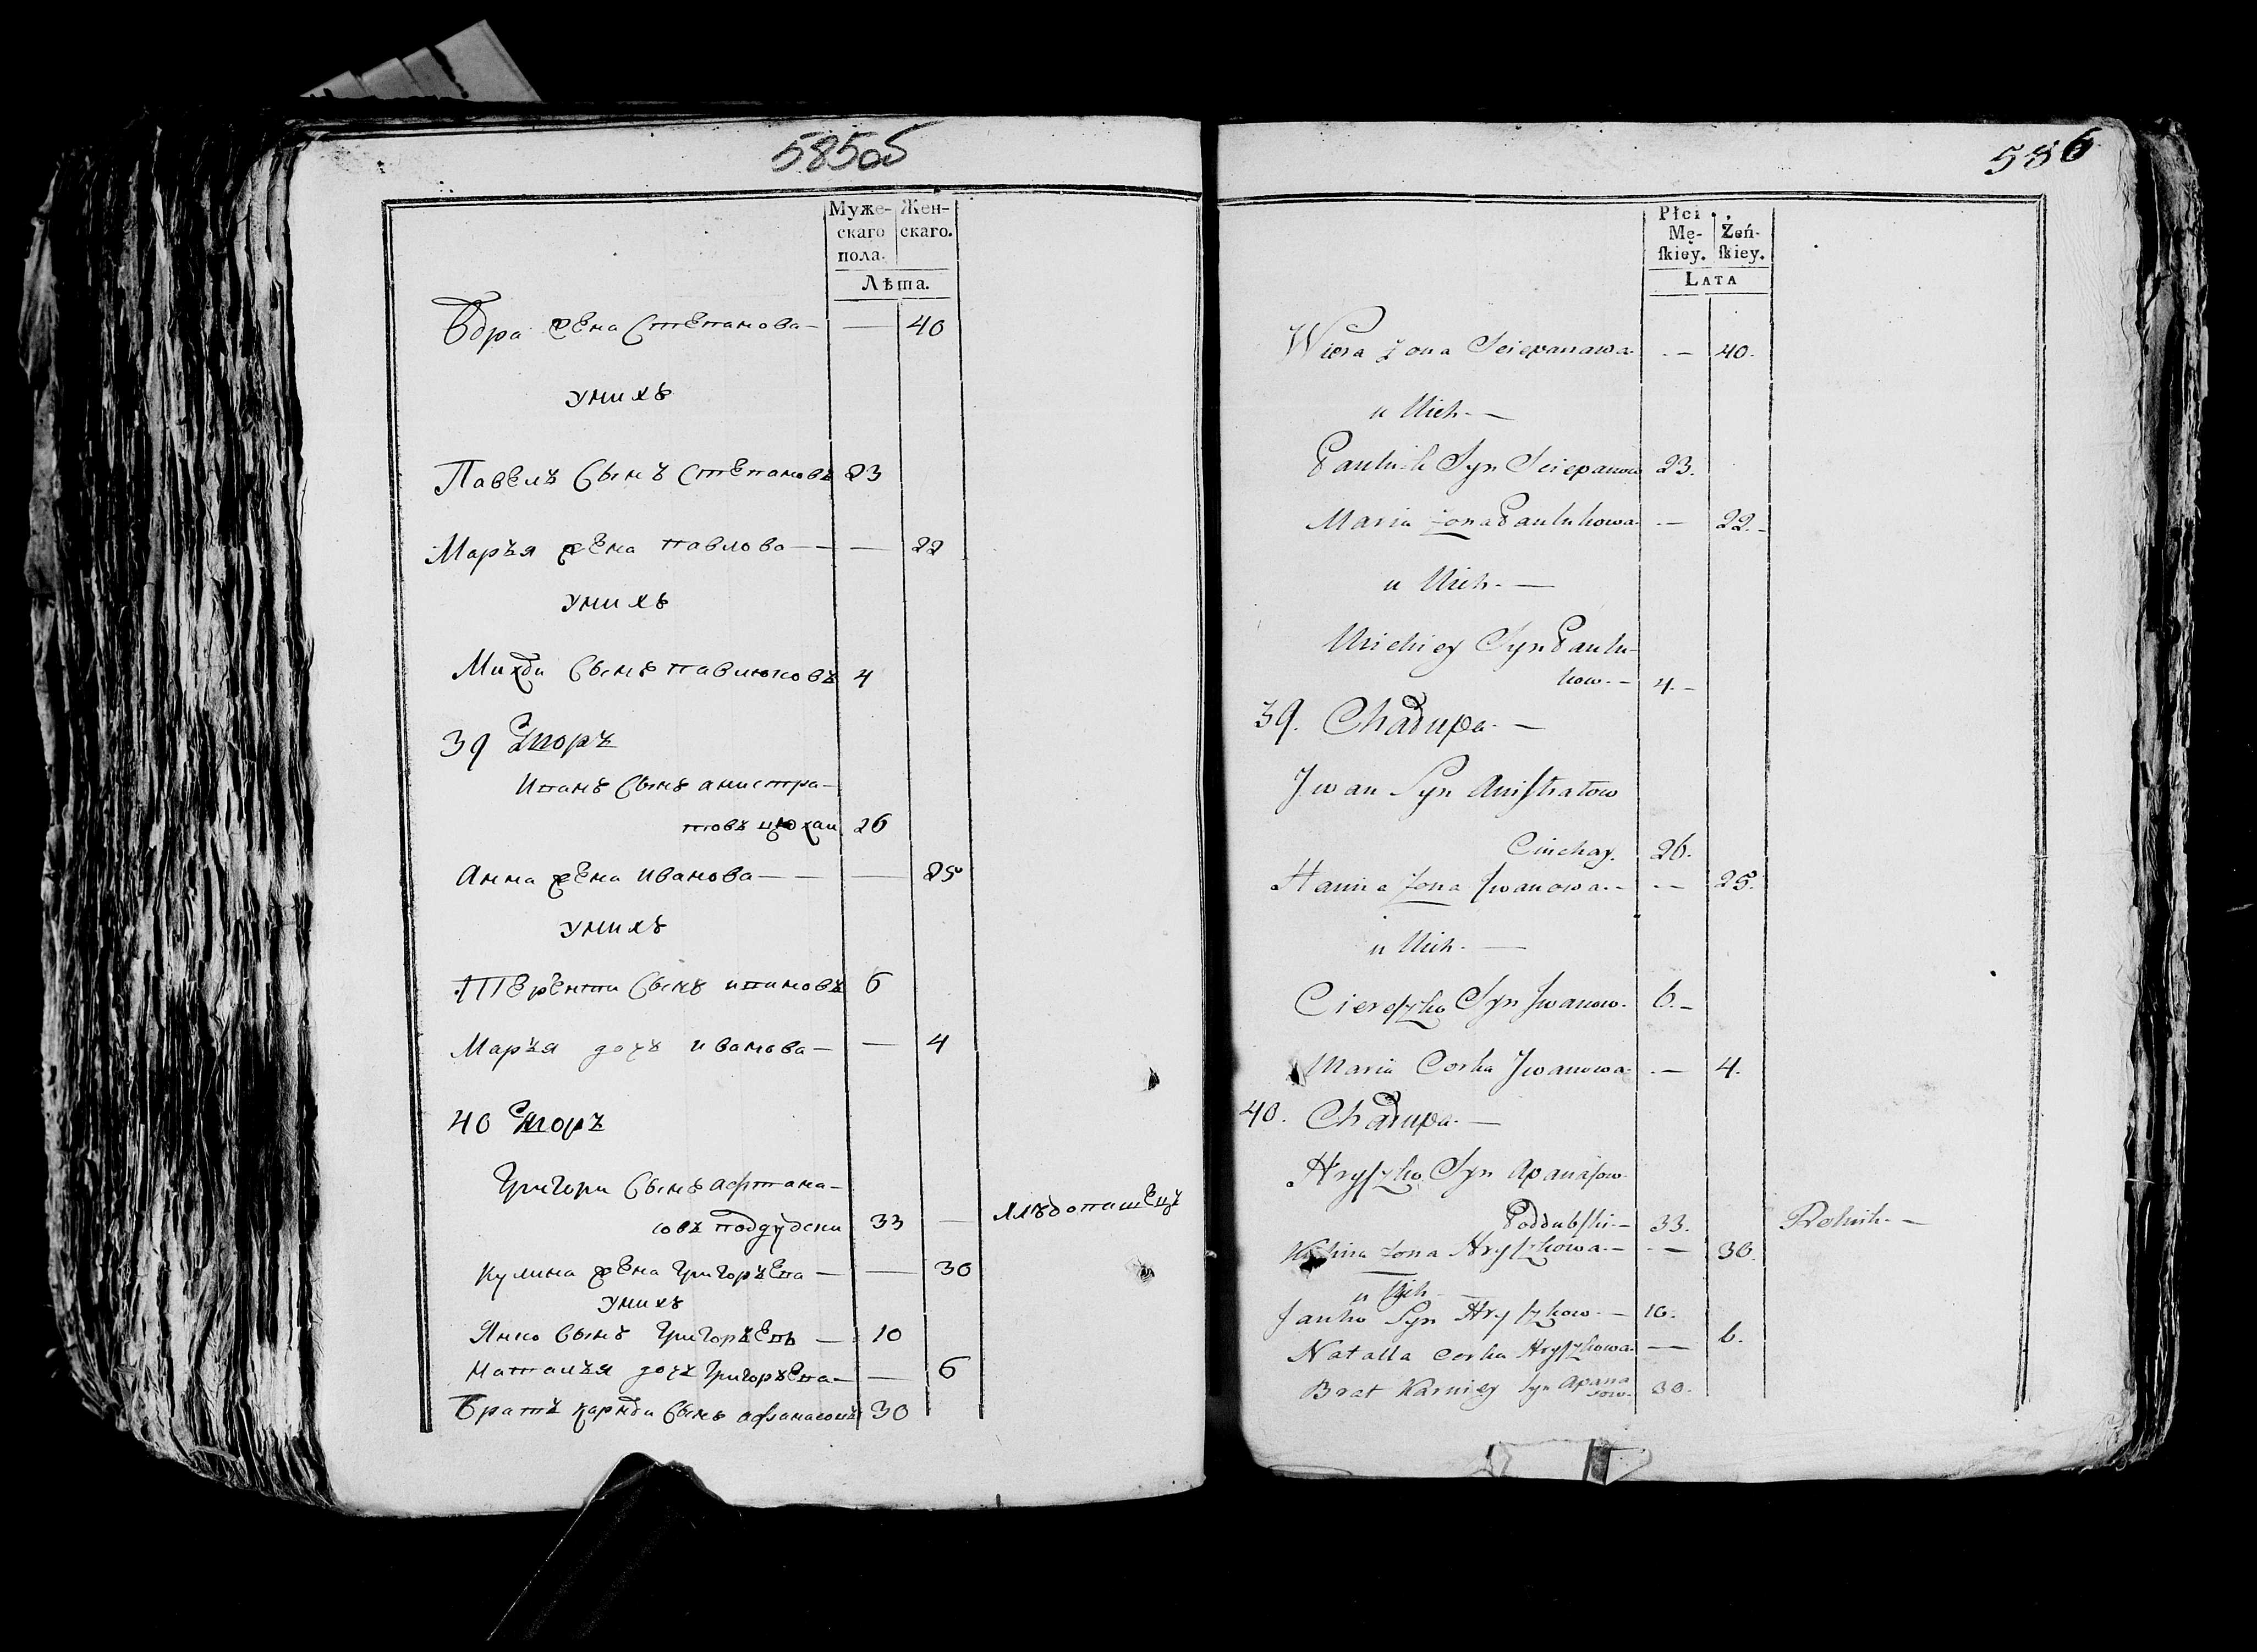 585об
Муже-
скаго
пола.
Жен-
скаго.
Лѣта.
Вѣра жена Степанова — — 40
У нихъ
Павелъ Сынъ Степановъ 23
Маръя жена павлова — — — 22
У нихъ
Михѣи Сынъ павлюковъ 4
39 Дворъ
Иванъ Сынъ анистра-
товъ цюхаи 26
Анна жена иванова — — — 25
У нихъ
Терентии Сынъ ивановъ 6
Маръя дочъ иванова — — 4
40 Дворъ
Григори Сынъ афтана-
совъ поддубски 33 — хлѣбопашецъ
Кулина жена григоръева — — 30
У нихъ
Янко Сынъ григоръевъ — 10
Наталъя дочъ григоръева — — 6
Братъ карнѣи Сынъ афанасовъ 30
586
Płci
Mę-
ſkiey.
Żeń-
ſkiey.
LATA
Wiera Żona Sciepanawa — 40.
u Nich —
Pauluk Syn Sciepanow 23.
Maria żona Paulukowa — 22. -
u Nich —
Michiey Syn Paulu-
kow — 4. -
39. Chałupa —
Jwan Syn Aniſtratow
Ciuchay. 26.
Hanna żona Jwanowa — — 25.
u Nich —
Ciereſzko Syn Jwanow. 6. -
Maria Corka Jwanowa — 4.
40. Chałupa —
Hryſzko Syn Apanaſow
Poddubſki — 33. Rolnik —
Kulina żona Hryſzkowa — — 30.
u Nich —
Janko Syn Hryſzkow — 10.
Natalla corka Hryſzkowa — 6.
Brat Karniey Syn Apana
sow 30.